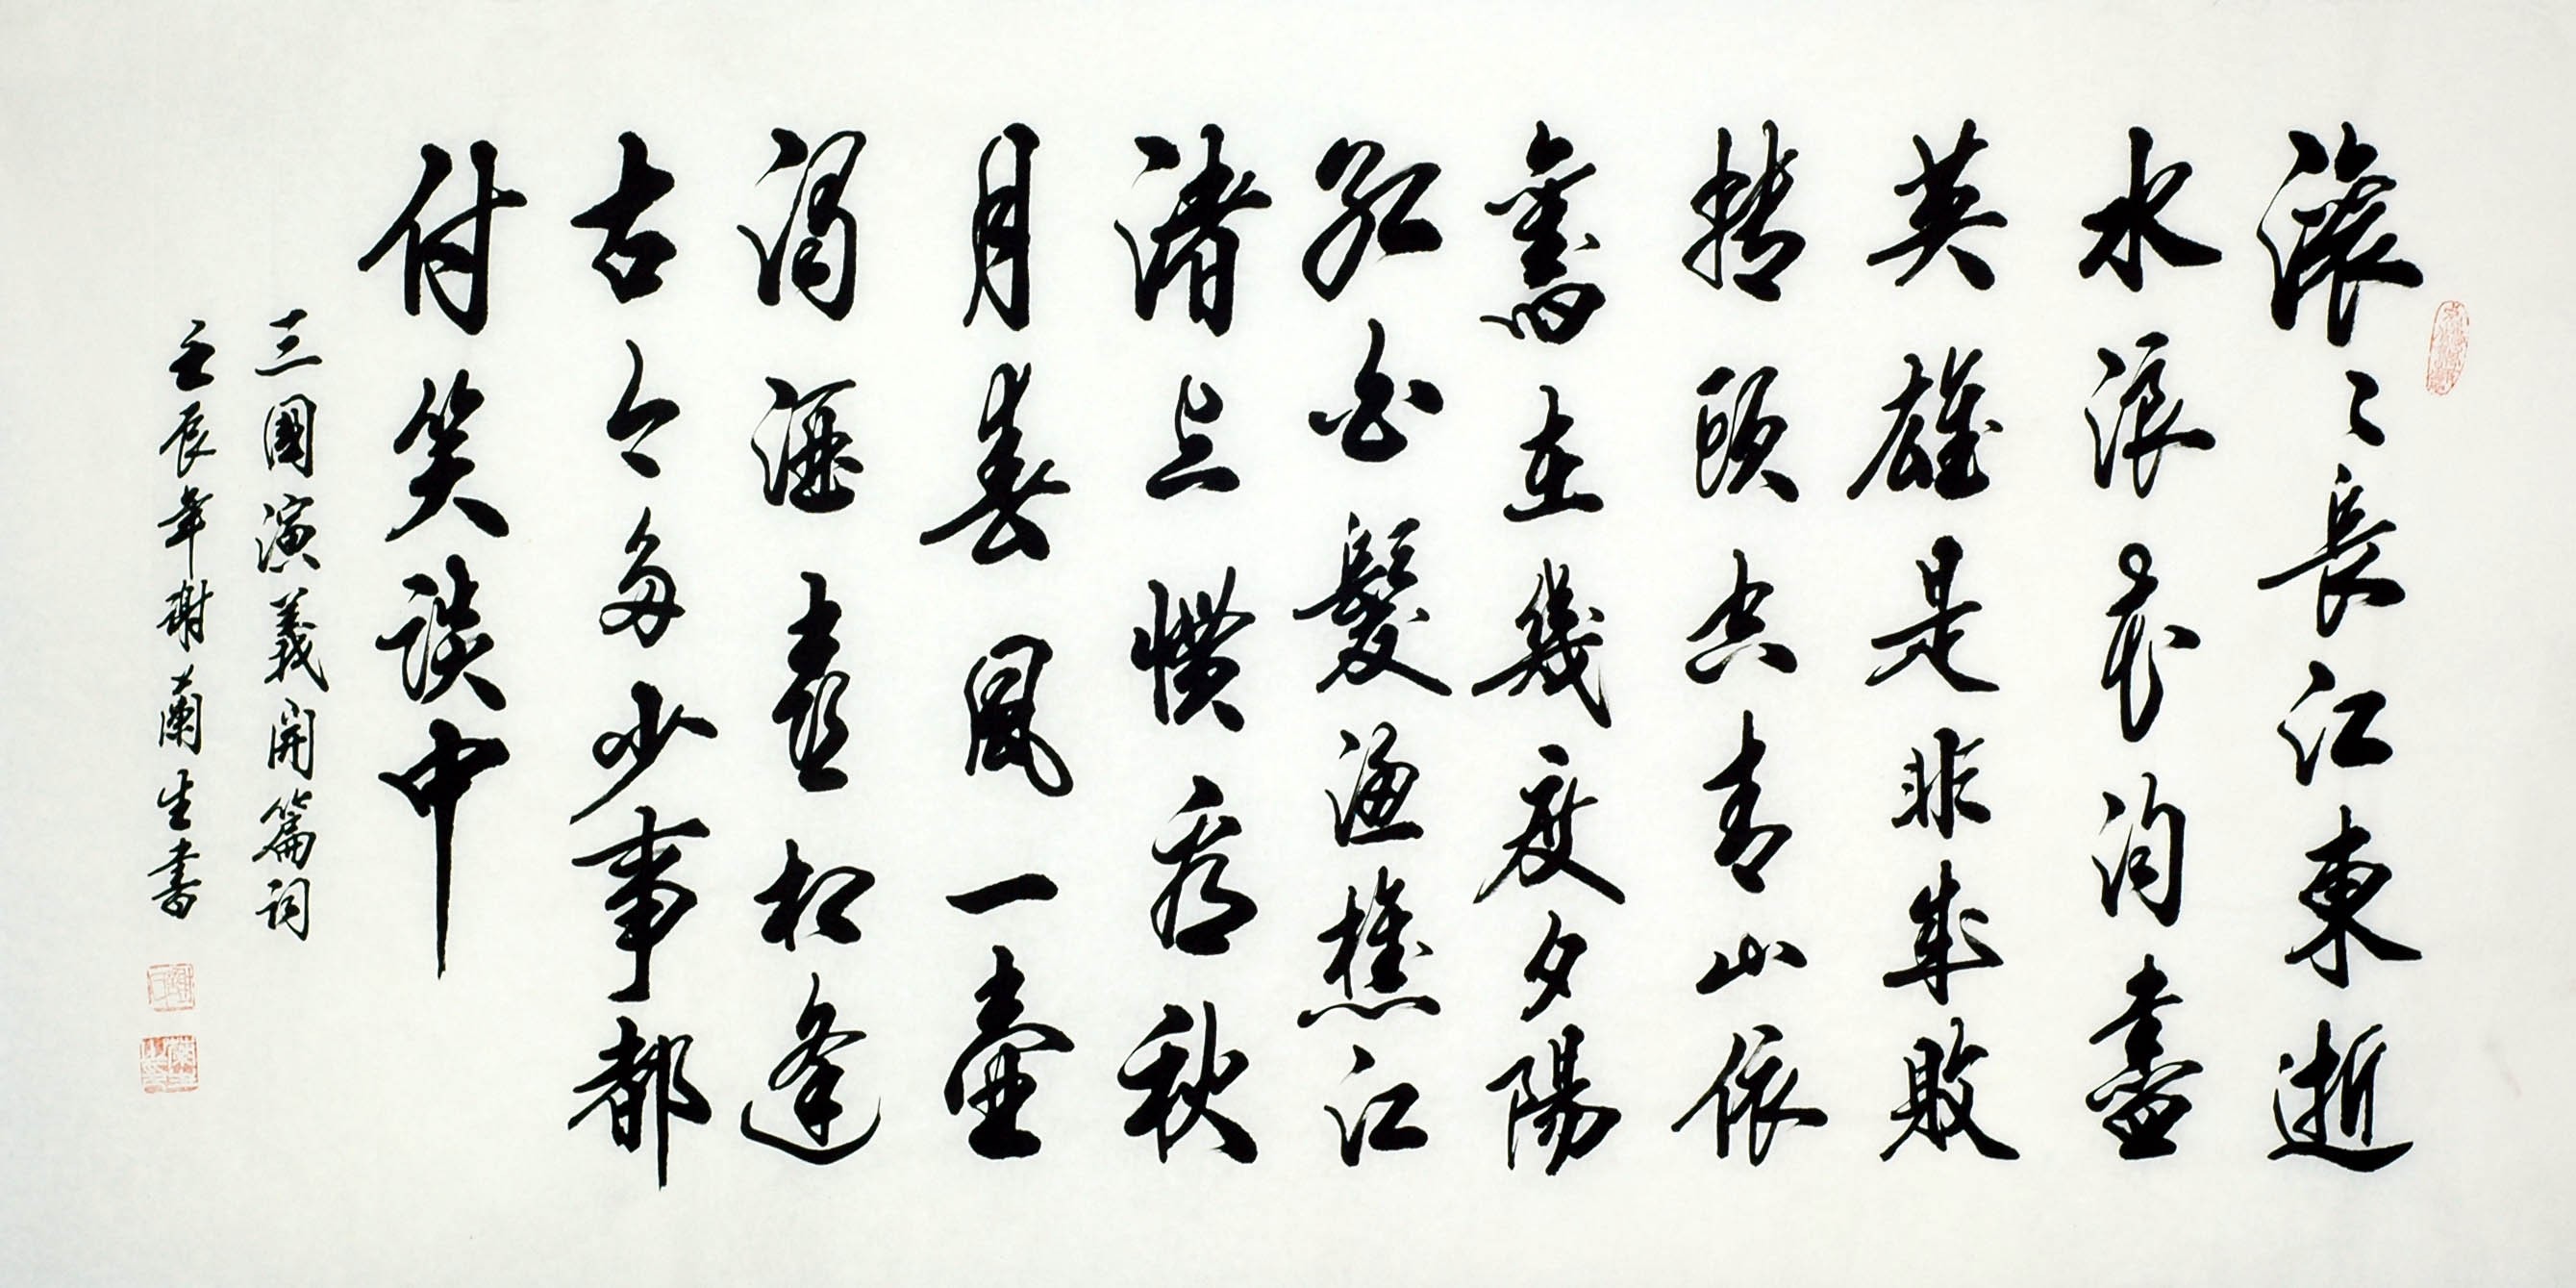 滚〻長江東逝
水浪花淘盡
英雄是非成敗
轉頭空青山依
舊在幾度夕陽
紅白髮漁樵江
渚上慣看秋
月春風一壺
濁酒喜相逢
古今多少事都
付笑談中
三國演義開篇詞
壬辰年謝蘭生書